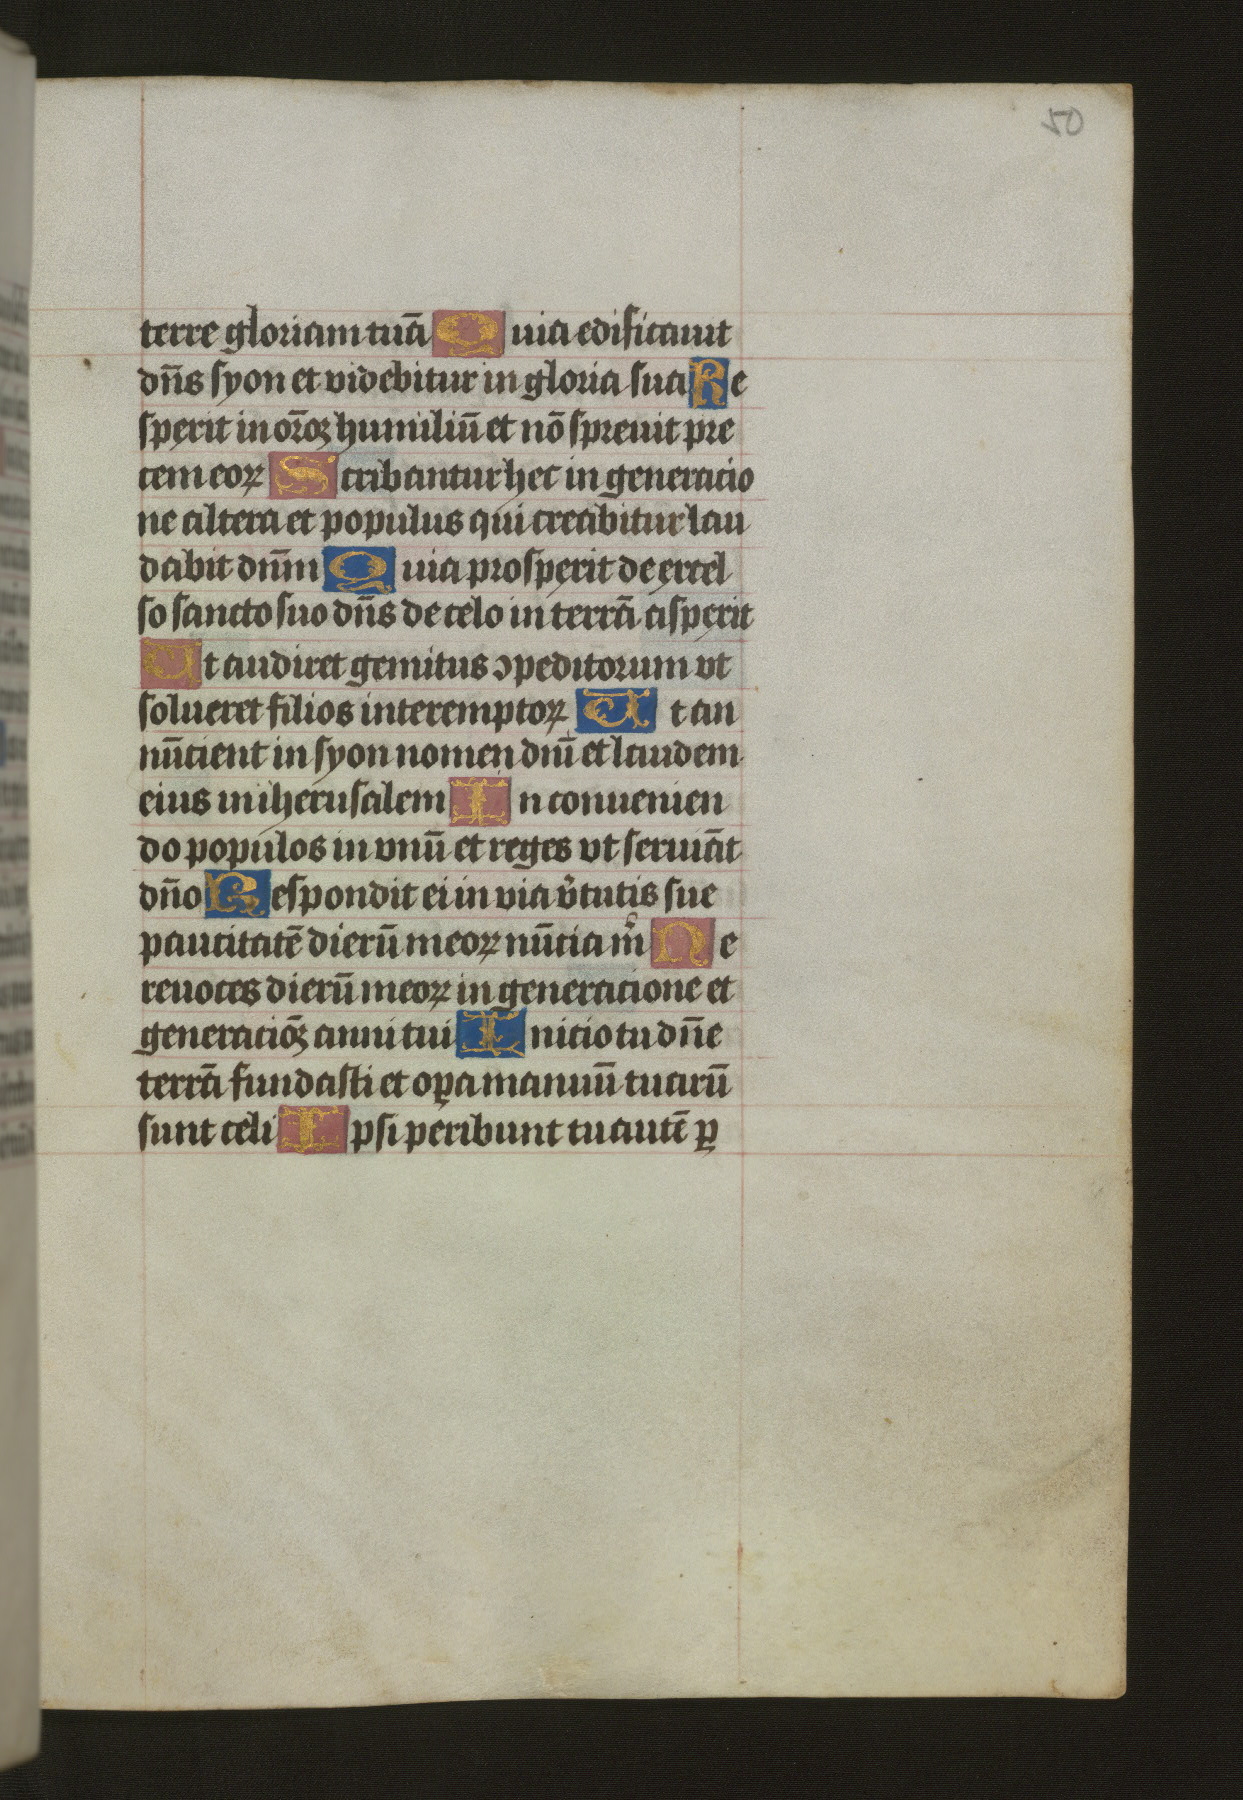 50
terre gloriam tuā Quia edificauit
dn̄s syon et videbitur in gloria sua Re
sperit in or̄oꝫ humiliū et nō spreuit pre
cem eoꝝ Scribantur hec in generacio
ne altera et populus qui creabitur lau
dabit dn̄m Quia prosperit de excel
so sancto suo dn̄s de celo in terrā asperit
Ut audiret gemitus ꝯpeditorum vt
solueret filios interemptoꝝ Ut an
nūcient in syon nomen dn̄i et laudem
eius in iherusalem In conuenien
do populos in vnū et reges vt seruiāt
dn̄o Respondit ei in via v̄tutis sue
paucitatē dierū meoꝝ nūcia m̄ Ne
reuoces dierū meoꝝ in generacione et
generaciōꝫ anni tui Inicio tu dn̄e
terrā fundasti et oꝑa manuū tuarū
sunt celi Ipsi peribunt tu autē ꝑ